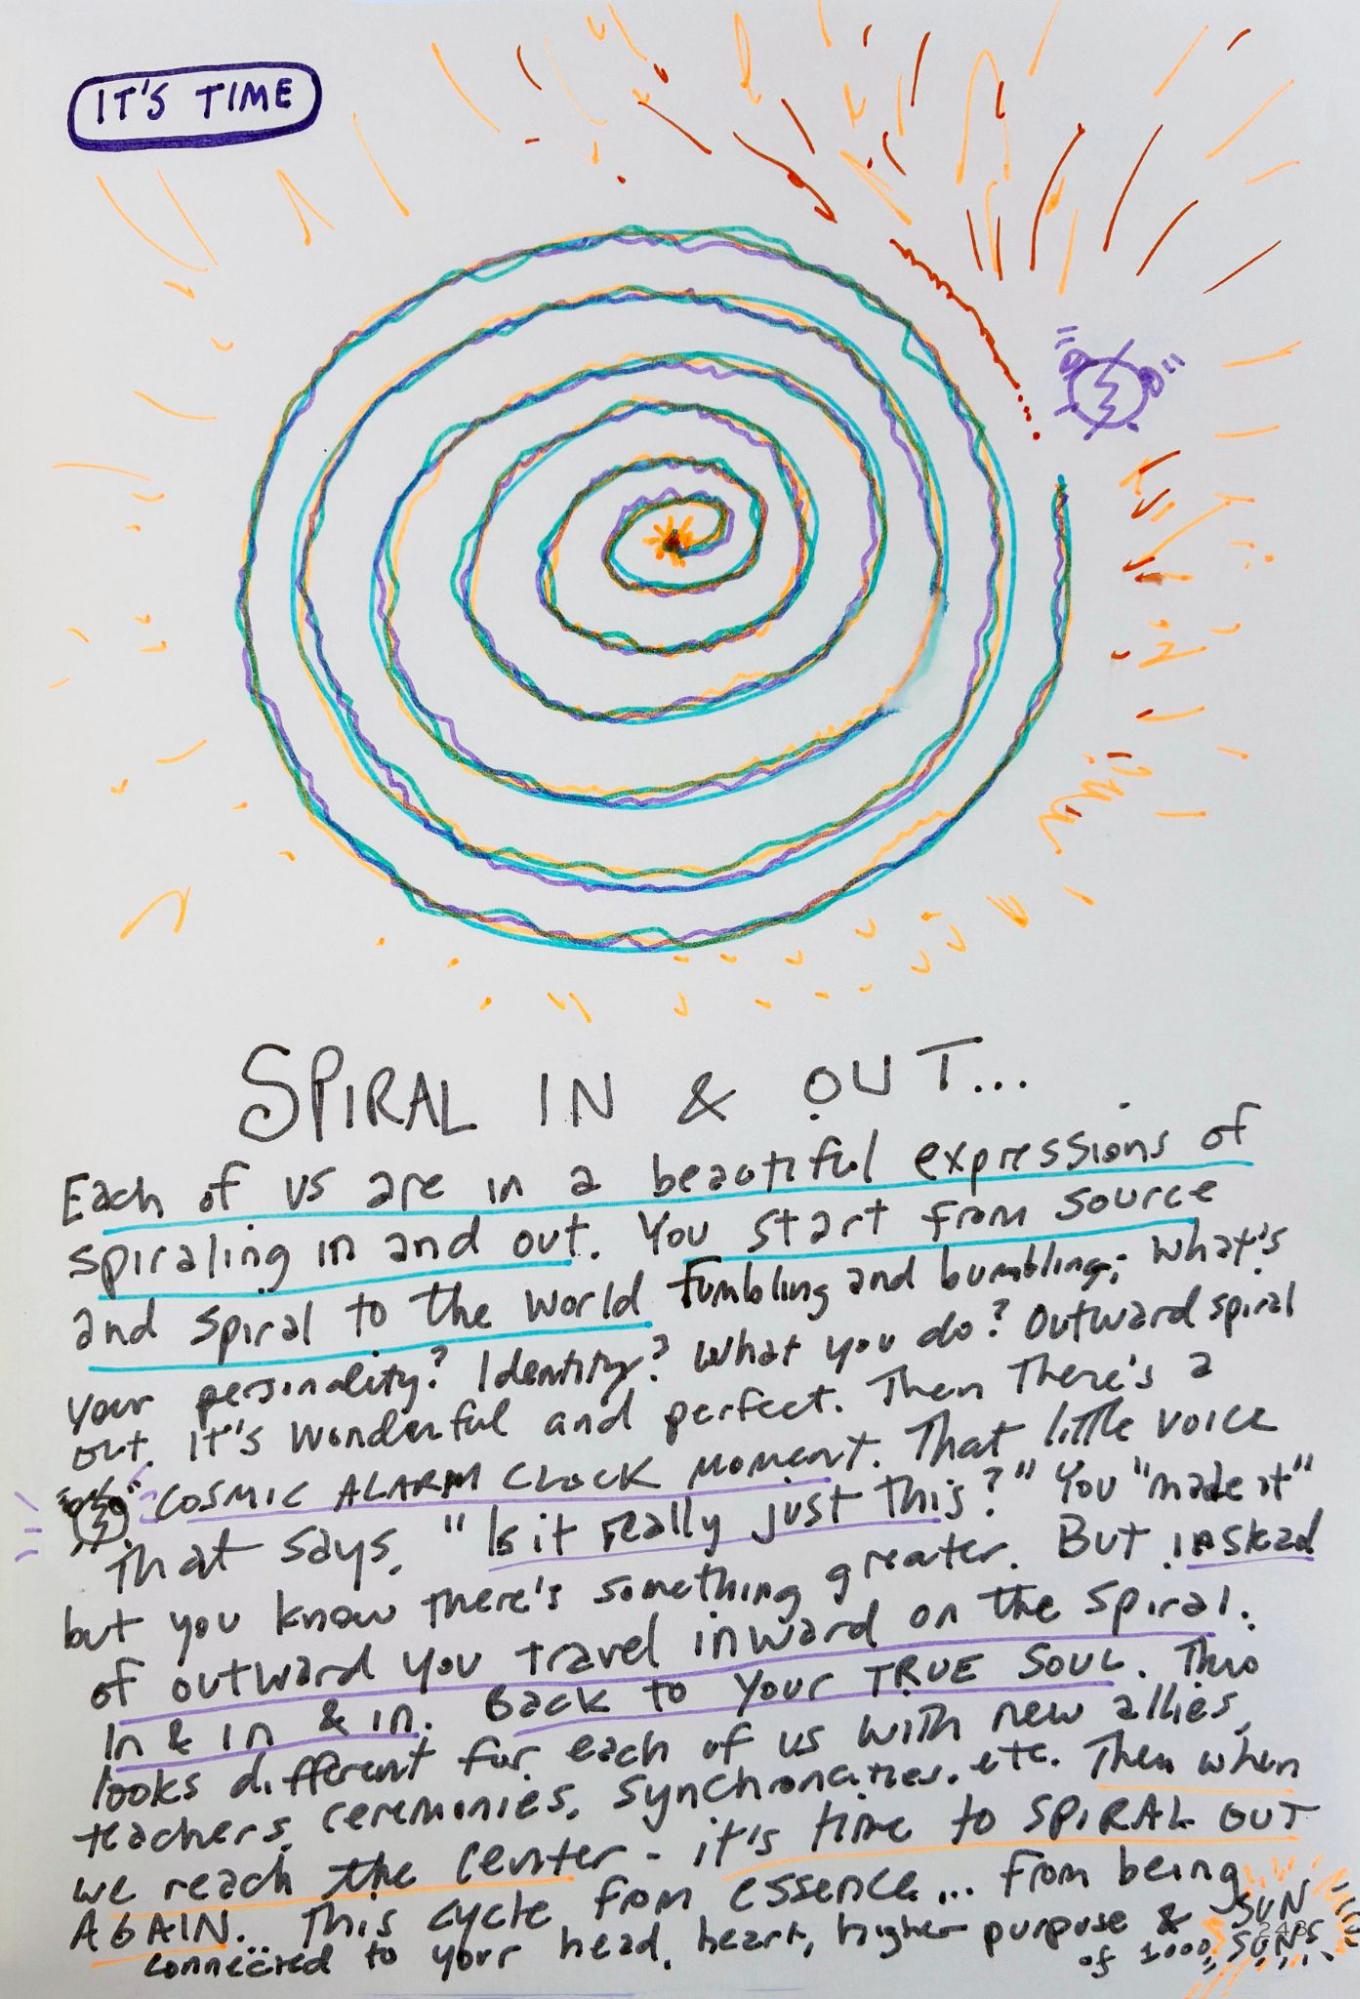 IT'S TIME
SPIRAL IN & OUT...
Each of us are in a beautiful expressions of
spiraling in and out. You start from source
and spiral to the world fumbling and bumbling; what's
your personality? Identity? What you do? Outward spiral
out. It's wonderful and perfect. Then There's a
COSMIC ALARM CLOCK MOMENT. That little voice
That says, "Is it really just this?" You "made it"
but you know there's something greater. But instead
of outward you travel inward on the spiral.
In & in & in. Back to your TRUE SOUL. This
looks different for each of us with new allies,
teachers, ceremonies, synchronicities, etc. Then when
we reach the center - it's time to SPIRAL OUT
AGAIN... This cycle from essence... From being
connected to your head, heart, higher purpose & SUN
of 1000 SUNS